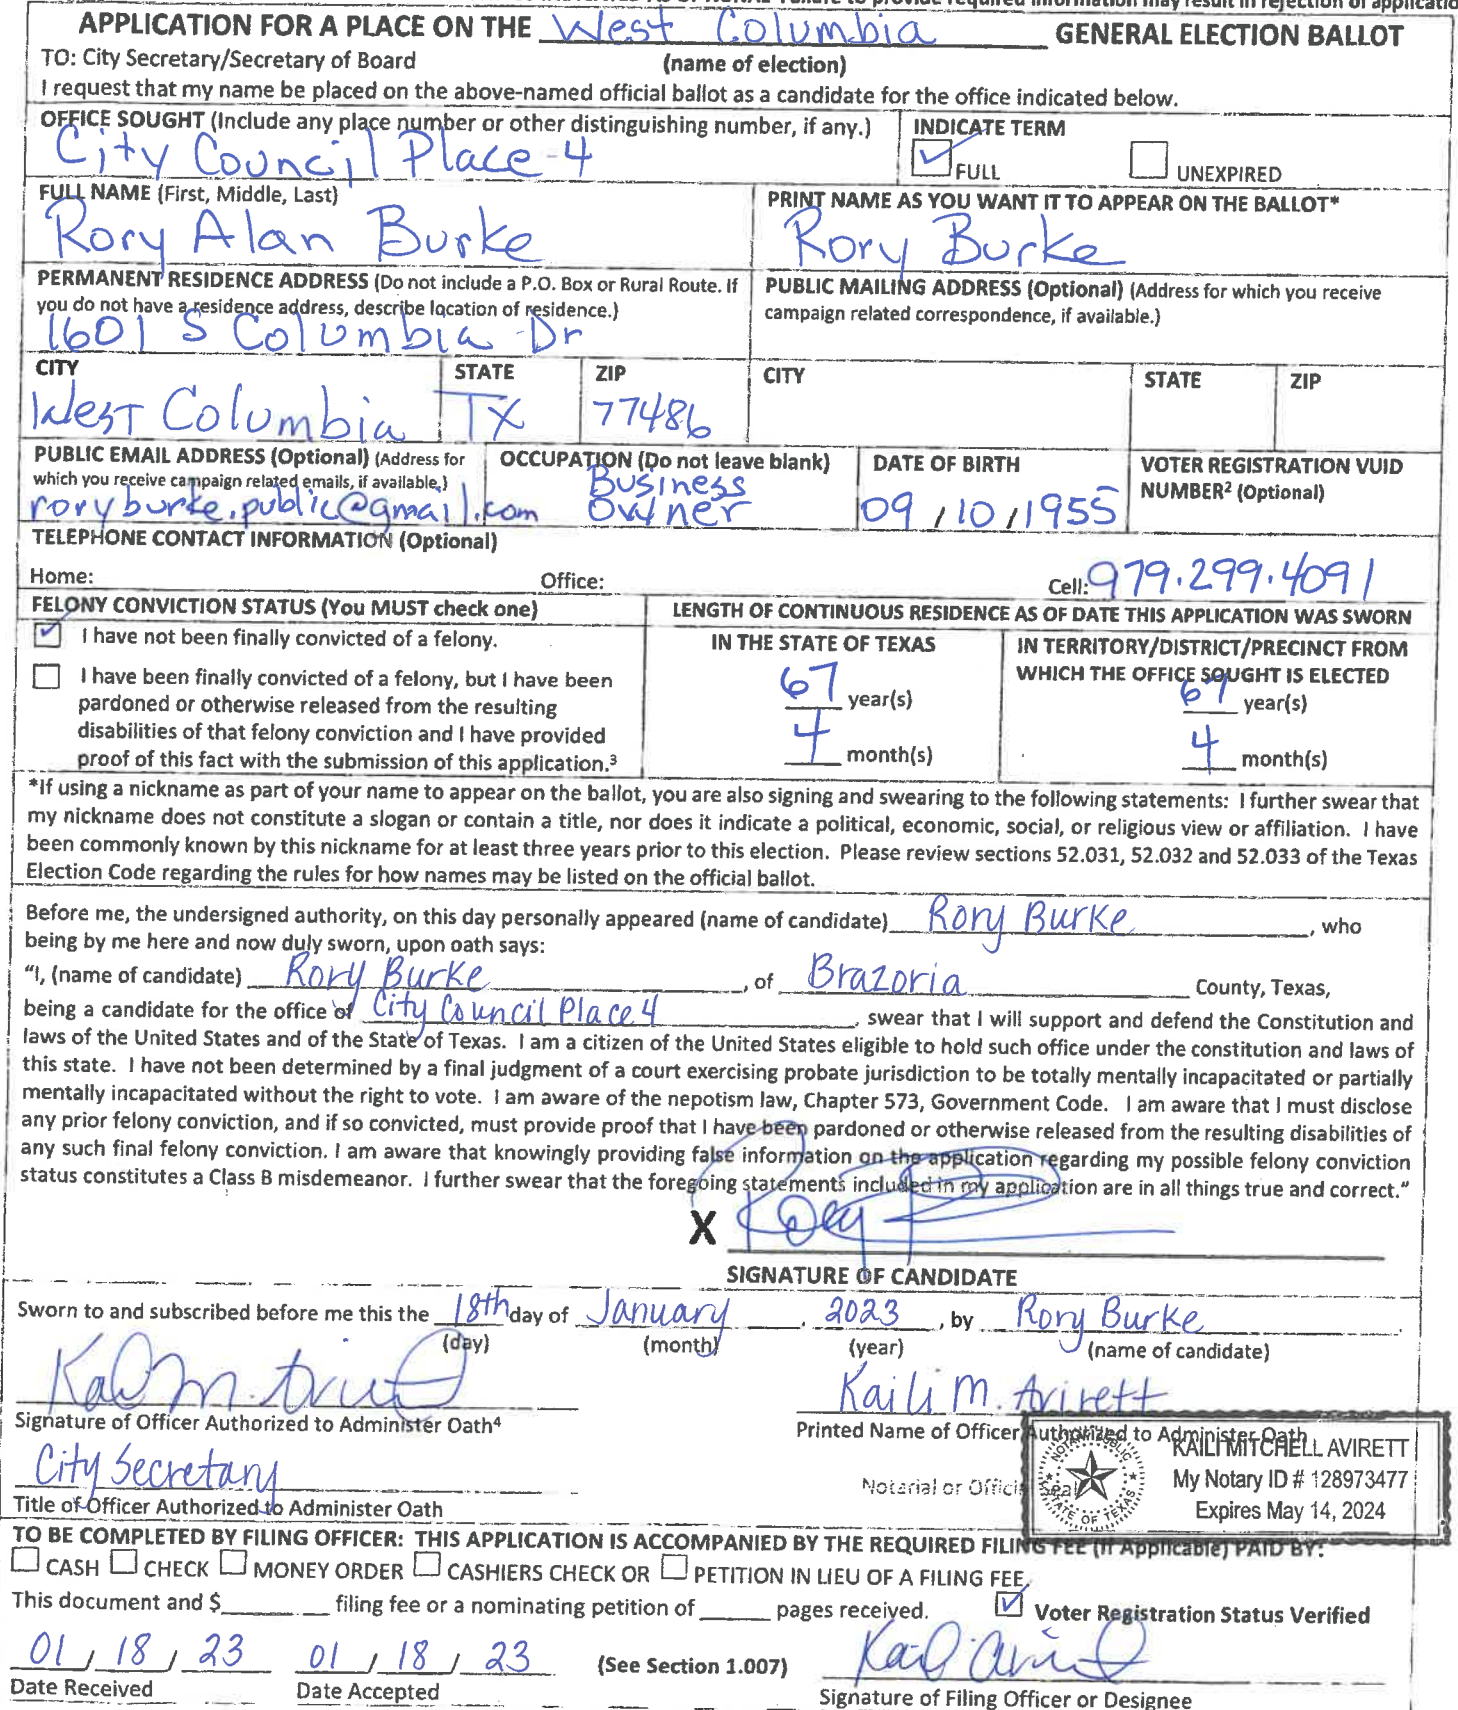 APPLICATION FOR A PLACE ON THE West Columbia GENERAL ELECTION BALLOT
TO: City Secretary/Secretary of Board (name of election)
I request that my name be placed on the above-named official ballot as a candidate for the office indicated below.
OFFICE SOUGHT (Include any place number or other distinguishing number, if any.)
City Council Place 4
INDICATE TERM
FULL UNEXPIRED
FULL NAME (First, Middle, Last)
Rory Alan Burke
PRINT NAME AS YOU WANT IT TO APPEAR ON THE BALLOT*
Rory Burke
PERMANENT RESIDENCE ADDRESS (Do not include a P.O. Box or Rural Route. If
you do not have a residence address, describe location of residence.)
1601 S Columbia Dr
PUBLIC MAILING ADDRESS (Optional) (Address for which you receive
campaign related correspondence, if available.)
CITY STATE ZIP CITY STATE ZIP
West Columbia TX 77486
PUBLIC EMAIL ADDRESS (Optional) (Address for
which you receive campaign related emails, if available.)
roryburke.public@gmail.com
OCCUPATION (Do not leave blank)
Business
Owner
DATE OF BIRTH
09 / 10 / 1955
VOTER REGISTRATION VUID
NUMBER² (Optional)
TELEPHONE CONTACT INFORMATION (Optional)
Home: Office: Cell: 979.299.4091
FELONY CONVICTION STATUS (You MUST check one)
I have not been finally convicted of a felony.
I have been finally convicted of a felony, but I have been
pardoned or otherwise released from the resulting
disabilities of that felony conviction and I have provided
proof of this fact with the submission of this application.³
LENGTH OF CONTINUOUS RESIDENCE AS OF DATE THIS APPLICATION WAS SWORN
IN THE STATE OF TEXAS
67 year(s)
4 month(s)
IN TERRITORY/DISTRICT/PRECINCT FROM
WHICH THE OFFICE SOUGHT IS ELECTED
67 year(s)
4 month(s)
*If using a nickname as part of your name to appear on the ballot, you are also signing and swearing to the following statements: I further swear that
my nickname does not constitute a slogan or contain a title, nor does it indicate a political, economic, social, or religious view or affiliation. I have
been commonly known by this nickname for at least three years prior to this election. Please review sections 52.031, 52.032 and 52.033 of the Texas
Election Code regarding the rules for how names may be listed on the official ballot.
Before me, the undersigned authority, on this day personally appeared (name of candidate) Rory Burke, who
being by me here and now duly sworn, upon oath says:
"I, (name of candidate) Rory Burke, of Brazoria County, Texas,
being a candidate for the office of City Council Place 4, swear that I will support and defend the Constitution and
laws of the United States and of the State of Texas. I am a citizen of the United States eligible to hold such office under the constitution and laws of
this state. I have not been determined by a final judgment of a court exercising probate jurisdiction to be totally mentally incapacitated or partially
mentally incapacitated without the right to vote. I am aware of the nepotism law, Chapter 573, Government Code. I am aware that I must disclose
any prior felony conviction, and if so convicted, must provide proof that I have been pardoned or otherwise released from the resulting disabilities of
any such final felony conviction. I am aware that knowingly providing false information on the application regarding my possible felony conviction
status constitutes a Class B misdemeanor. I further swear that the foregoing statements included in my application are in all things true and correct."
X Rory
SIGNATURE OF CANDIDATE
Sworn to and subscribed before me this the 18th day of January, 2023, by Rory Burke
(day) (month) (year) (name of candidate)
Kaili M. Avirett
Kaili M. Avirett
Signature of Officer Authorized to Administer Oath⁴
Printed Name of Officer Authorized to Administer Oath
City Secretary
Title of Officer Authorized to Administer Oath
Notarial or Official Seal
NOTARY PUBLIC
STATE OF TEXAS
KAILI MITCHELL AVIRETT
My Notary ID # 128973477
Expires May 14, 2024
TO BE COMPLETED BY FILING OFFICER: THIS APPLICATION IS ACCOMPANIED BY THE REQUIRED FILING FEE (If Applicable) PAID BY:
CASH CHECK MONEY ORDER CASHIERS CHECK OR PETITION IN LIEU OF A FILING FEE.
This document and $ filing fee or a nominating petition of pages received. Voter Registration Status Verified
01 / 18 / 23 01 / 18 / 23 (See Section 1.007) Kaili Avirett
Date Received Date Accepted Signature of Filing Officer or Designee